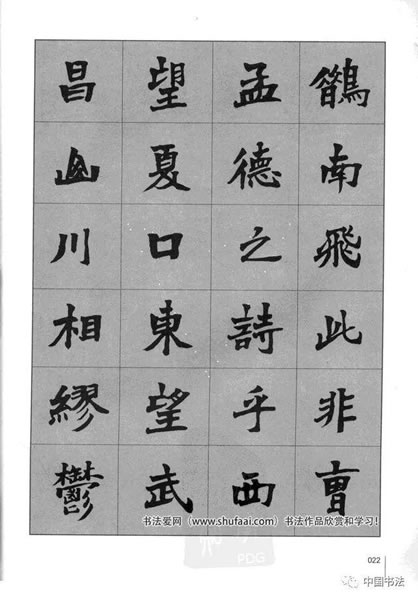 鵲南飛此非曹
孟德之詩乎西
望夏口東望武
昌山川相繆鬱
书法爱网（www.shufaai.com）书法作品欣赏和学习！
PDG
022
中国书法